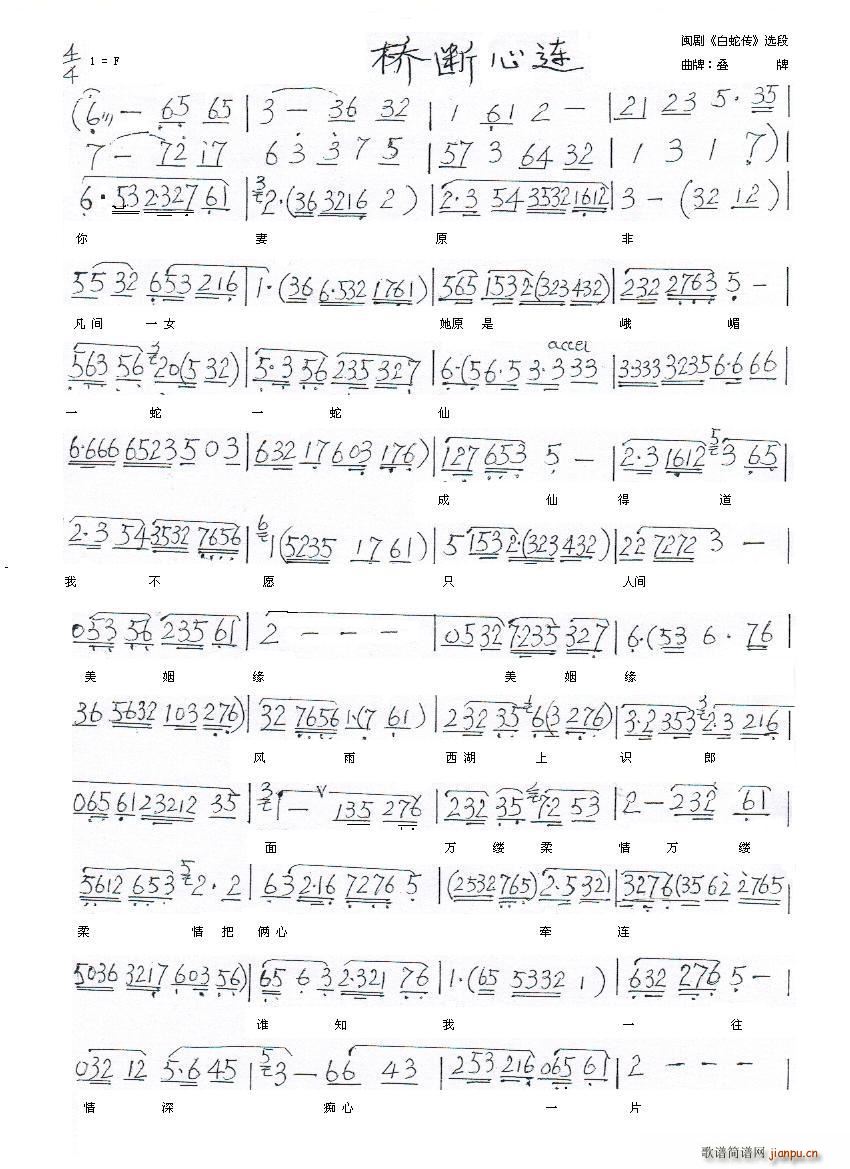 桥断心连
闽剧《白蛇传》选段
曲牌：叠 牌
4/4 1 = F
(6/// — 65 65 | 3 — 36 32 | 1 61 2 — | 21 23 5· 35 |
7 — 72 17 | 6 3 3 7 5 | 57 3 64 32 | 1 3 1 7) |
6·53 2·327 61 | 2·(36 3216 2) | 2·3 54 3532 1612 | 3 — (32 12) |
你 妻 原 非
55 32 653 216 | 1·(36 6·532 1761) | 565 1532·(323 432) | 232 2763 5 — |
凡间 一女 她原 是 峨 嵋
563 56 3 20(5 32) | 5·3 56 235 327 | 6·(56·5 3·3 33 | 3·333 3235 6·6 66 |
accel
一 蛇 一 蛇 仙
6·666 6523 5 03 | 632 17 603 176) | 127 653 5 — | 2·3 1612 5 3 65 |
成 仙 得 道
2·3 54 3532 7656 | 6 1(5235 1761) | 5 1532·(323 432) | 22 7272 3 — |
我 不 愿 只 人间
053 56 235 61 | 2 — — — | 0532 7·235 327 | 6·(53 6· 76 |
美 姻 缘 美 姻 缘
36 5632 103 276) | 32 7656 1·(7 61) | 232 35 6(3 276) | 3·2 353 2·3 216 |
风 雨 西湖 上 识 郎
065 61 23212 35 | 3 i — V 135 276 | 232 35 7·2 53 | 2 — 232 61 |
面 万 缕 柔 情 万 缕
5612 653 5 2·2 | 63 2·16 7276 5 | (2532 765) 2·5321 | 3276 (3562 2765 |
柔 情 把 俩心 牵 连
5036 3217 603 56) | 65 6 3 2·321 76 | 1·(65 5332 1) | 632 276 5 — |
谁 知 我 一 往
032 12 5·645 | 5 3 — 66 43 | 253 216 065 61 | 2 — — — |
情 深 痴心 一 片
歌谱简谱网
jianpu.cn